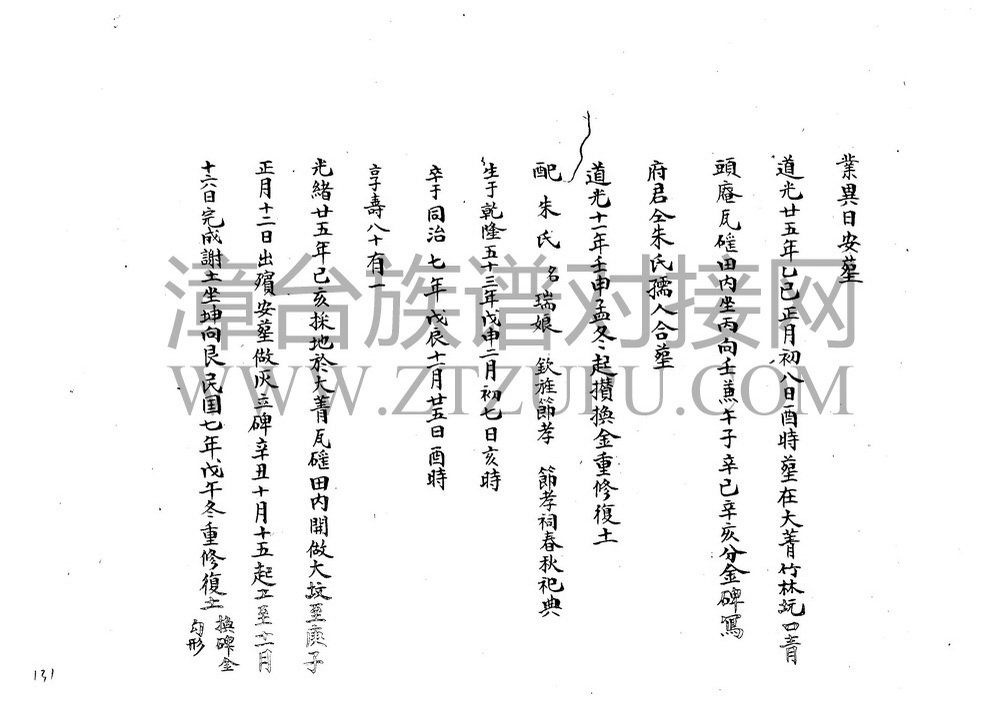 業異日安塟
道光廿五年乙巳正月初八日酉時塟在大菁竹林坑口青
頭庵瓦磘田内坐丙向壬蒹午子辛巳辛亥分金碑寫
府君仝朱氏孺人合塟
道光十一年壬申孟冬起攢換金重修復土
配朱氏 名瑞娘 欽旌節孝 節孝祠春秋祀典
生于乾隆五十三年戊申二月初七日亥時
卒于同治七年戊辰十一月廿五日酉時
享壽八十有一
光緒廿五年己亥採地於大菁瓦磘田内開做大坟至庚子
正月十二日出殯安塟做灰立碑辛丑十月十五起工至十一月
十六日完成謝土坐坤向艮民国七年戊午冬重修復土 換碑金
勾形
漳台族谱对接网
WWW.ZTZUPU.COM
131